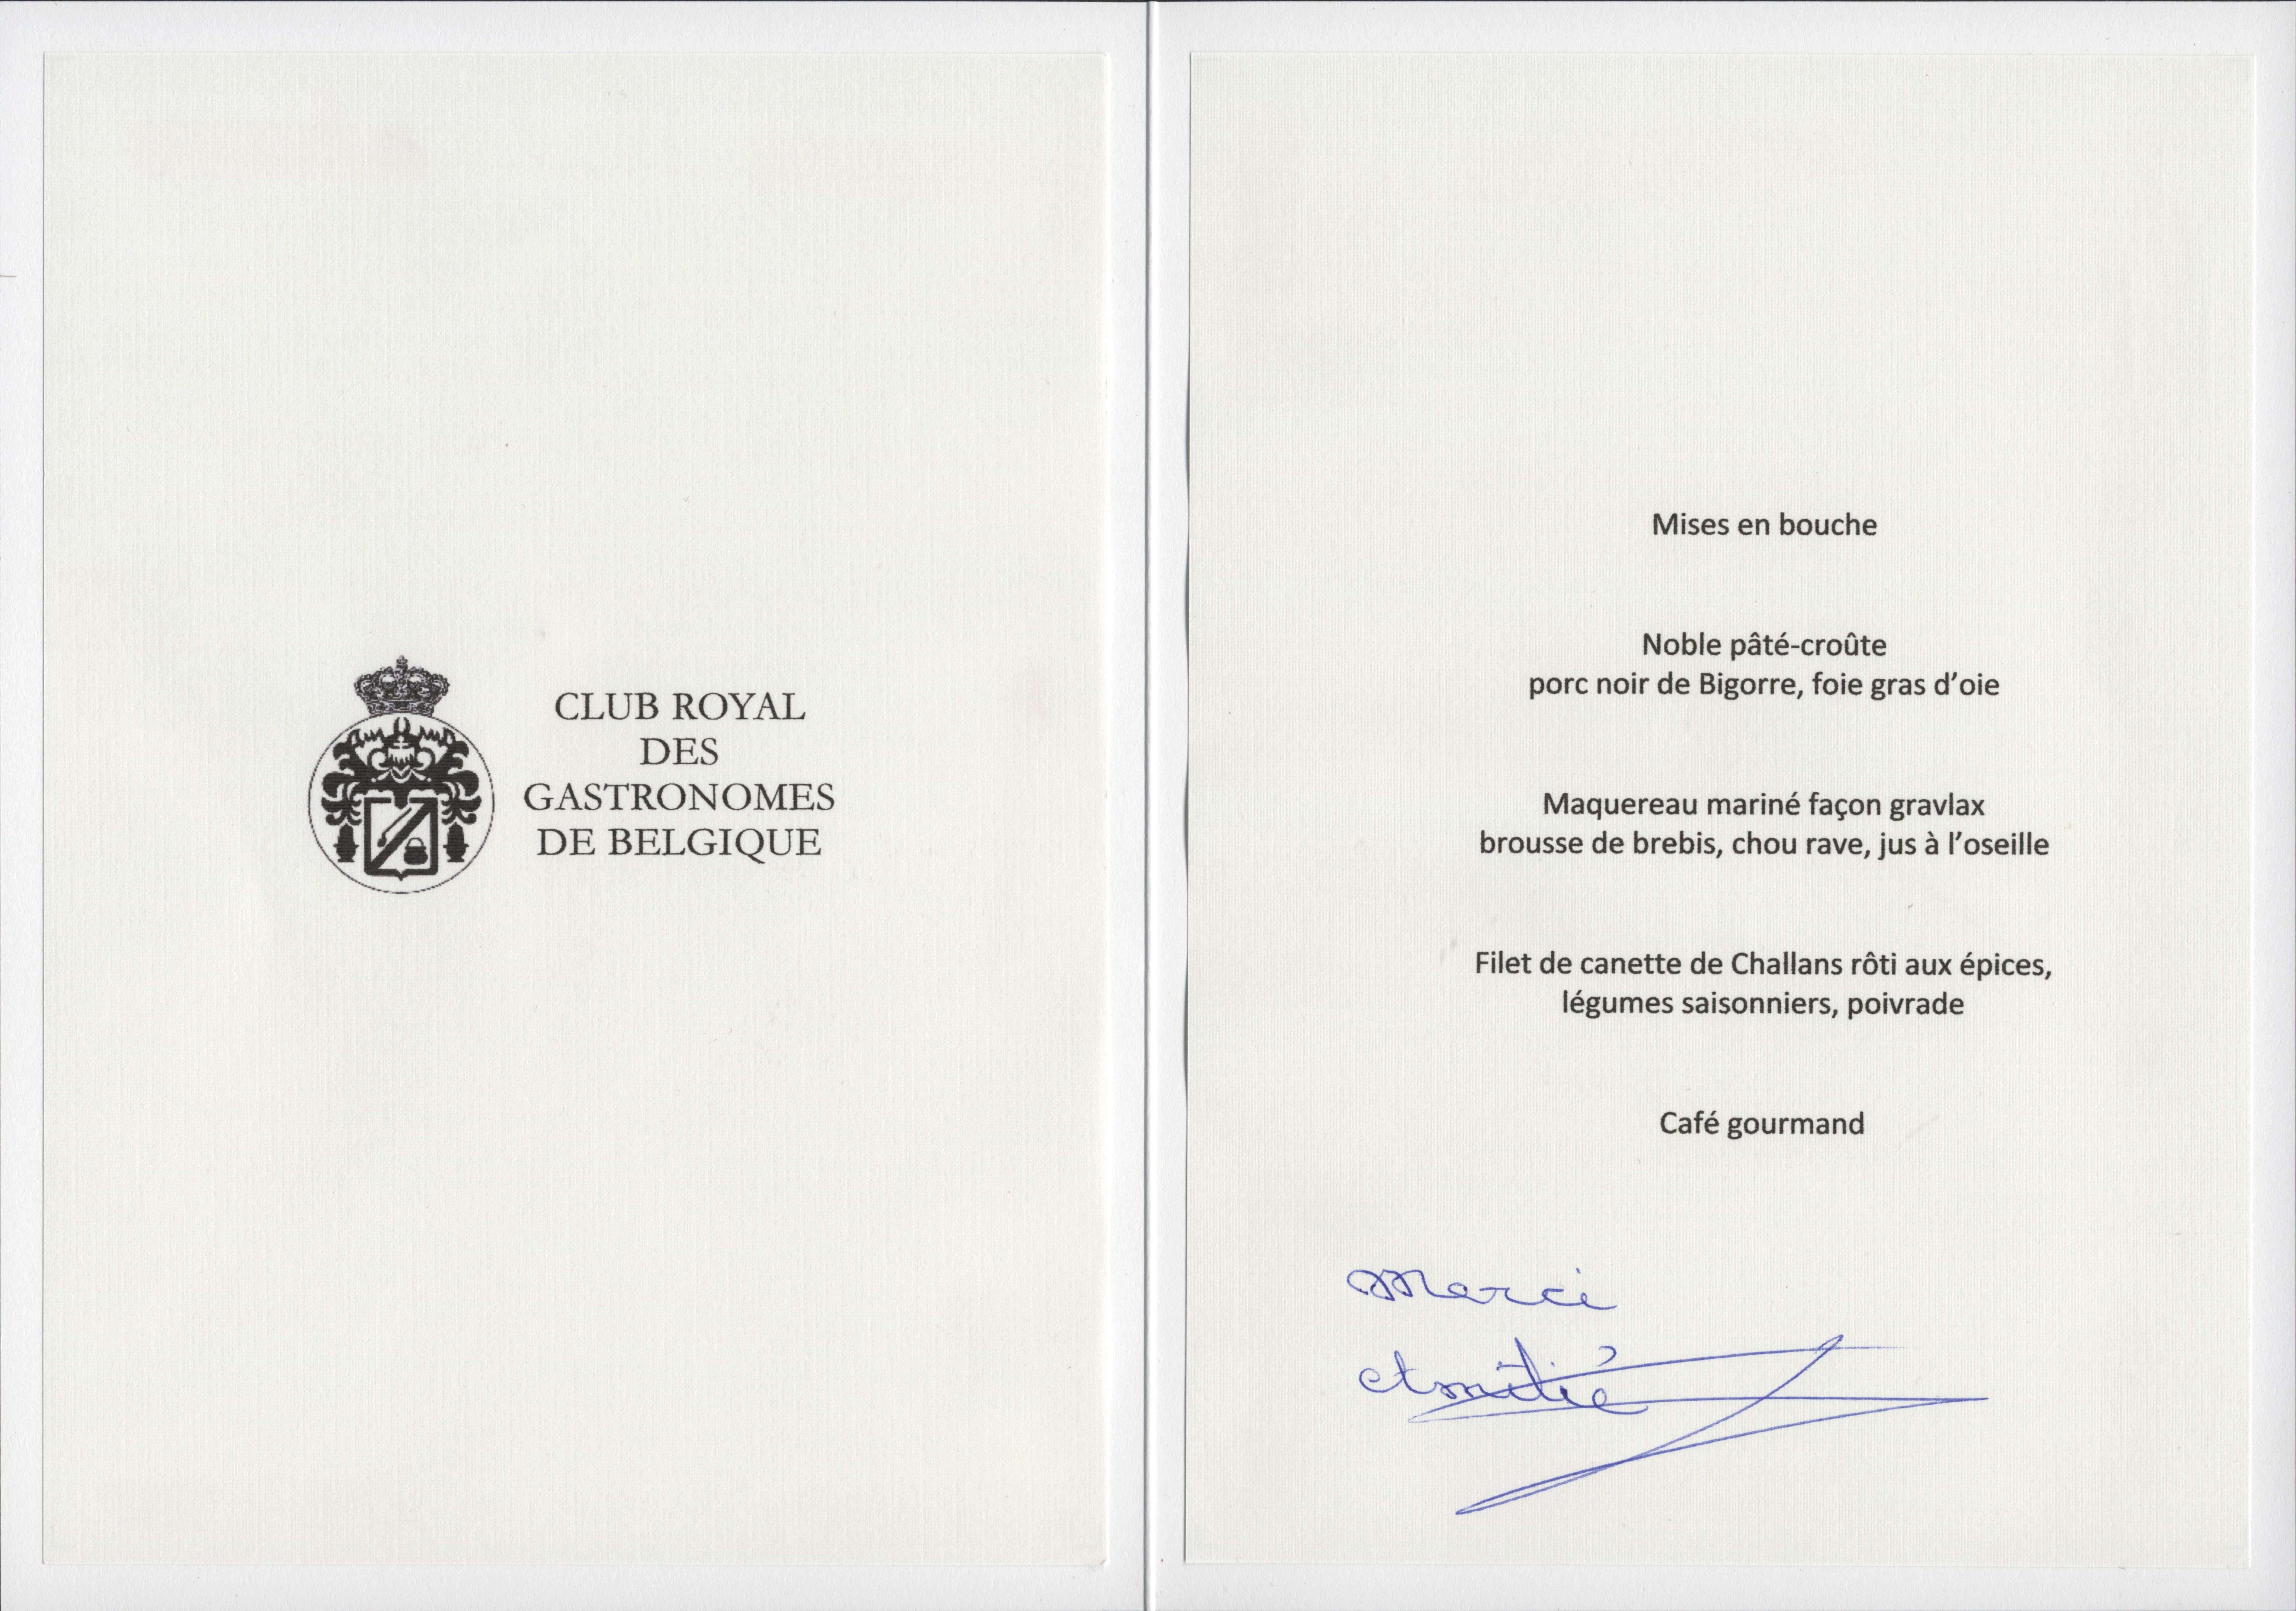 CLUB ROYAL
DES
GASTRONOMES
DE BELGIQUE
Mises en bouche
Noble pâté-croûte
porc noir de Bigorre, foie gras d'oie
Maquereau mariné façon gravlax
brousse de brebis, chou rave, jus à l'oseille
Filet de canette de Challans rôti aux épices,
légumes saisonniers, poivrade
Café gourmand
Merci